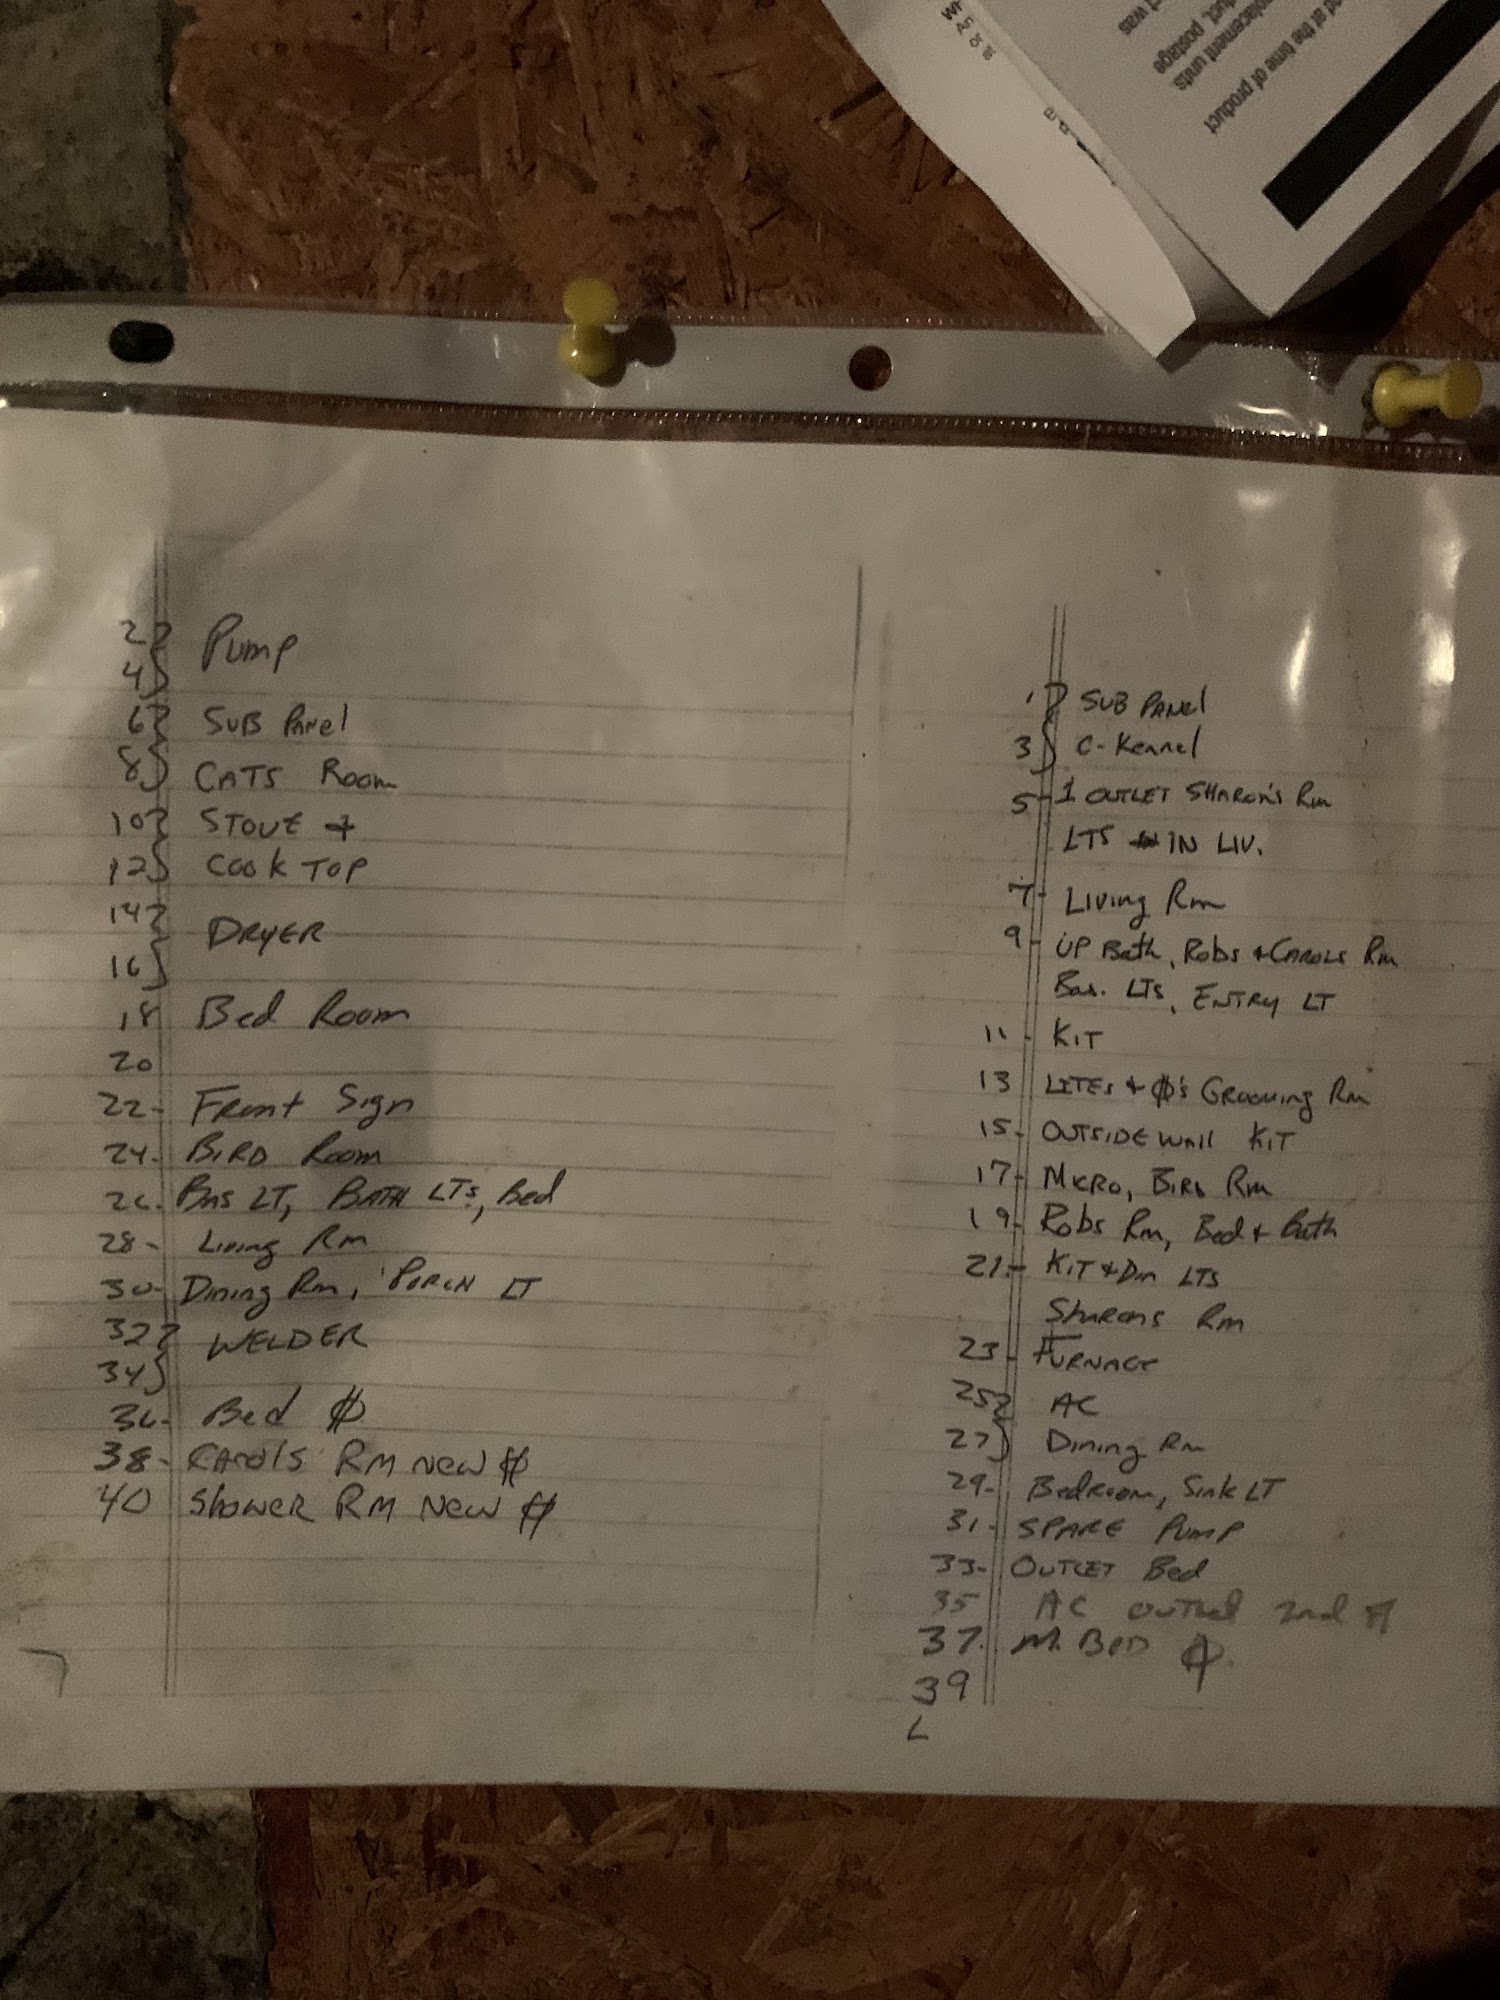 d at the time of product
placement units
uct, postage
t was
2} Pump
4}
6} SUB PANel
8} CATS Room
10} STOVE +
12} COOK TOP
14} DRYER
16}
18 Bed Room
20
22- Front Sign
24- BIRD Room
26- BAS LT, BATH LTs, Bed
28- Living Rm
30- Dining Rm, PORCH LT
32} WELDER
34}
36- Bed
38- CAROLS RM NeW
40 SHOWER RM NEW
1} SUB PANel
3} C-Kennel
5- 1 OUTLET SHARON'S Rm
LTS IN LIV.
7- Living Rm
9- UP Bath, Robs + CAROLS Rm
Bas. LTs, ENTRY LT
11- KIT
13 LITES + 's GROOMING Rm
15- OUTSIDE WAll KIT
17- MICRO, BIRD Rm
19- Robs Rm, Bed + Bath
21- KIT + Din LTS
SHARONS Rm
23- FURNACE
25} AC
27} Dining Rm
29- Bedroom, Sink LT
31- SPARE PUMP
33- OUTLET Bed
35 AC OUTLET 2nd Fl
37- M. BED
39
L